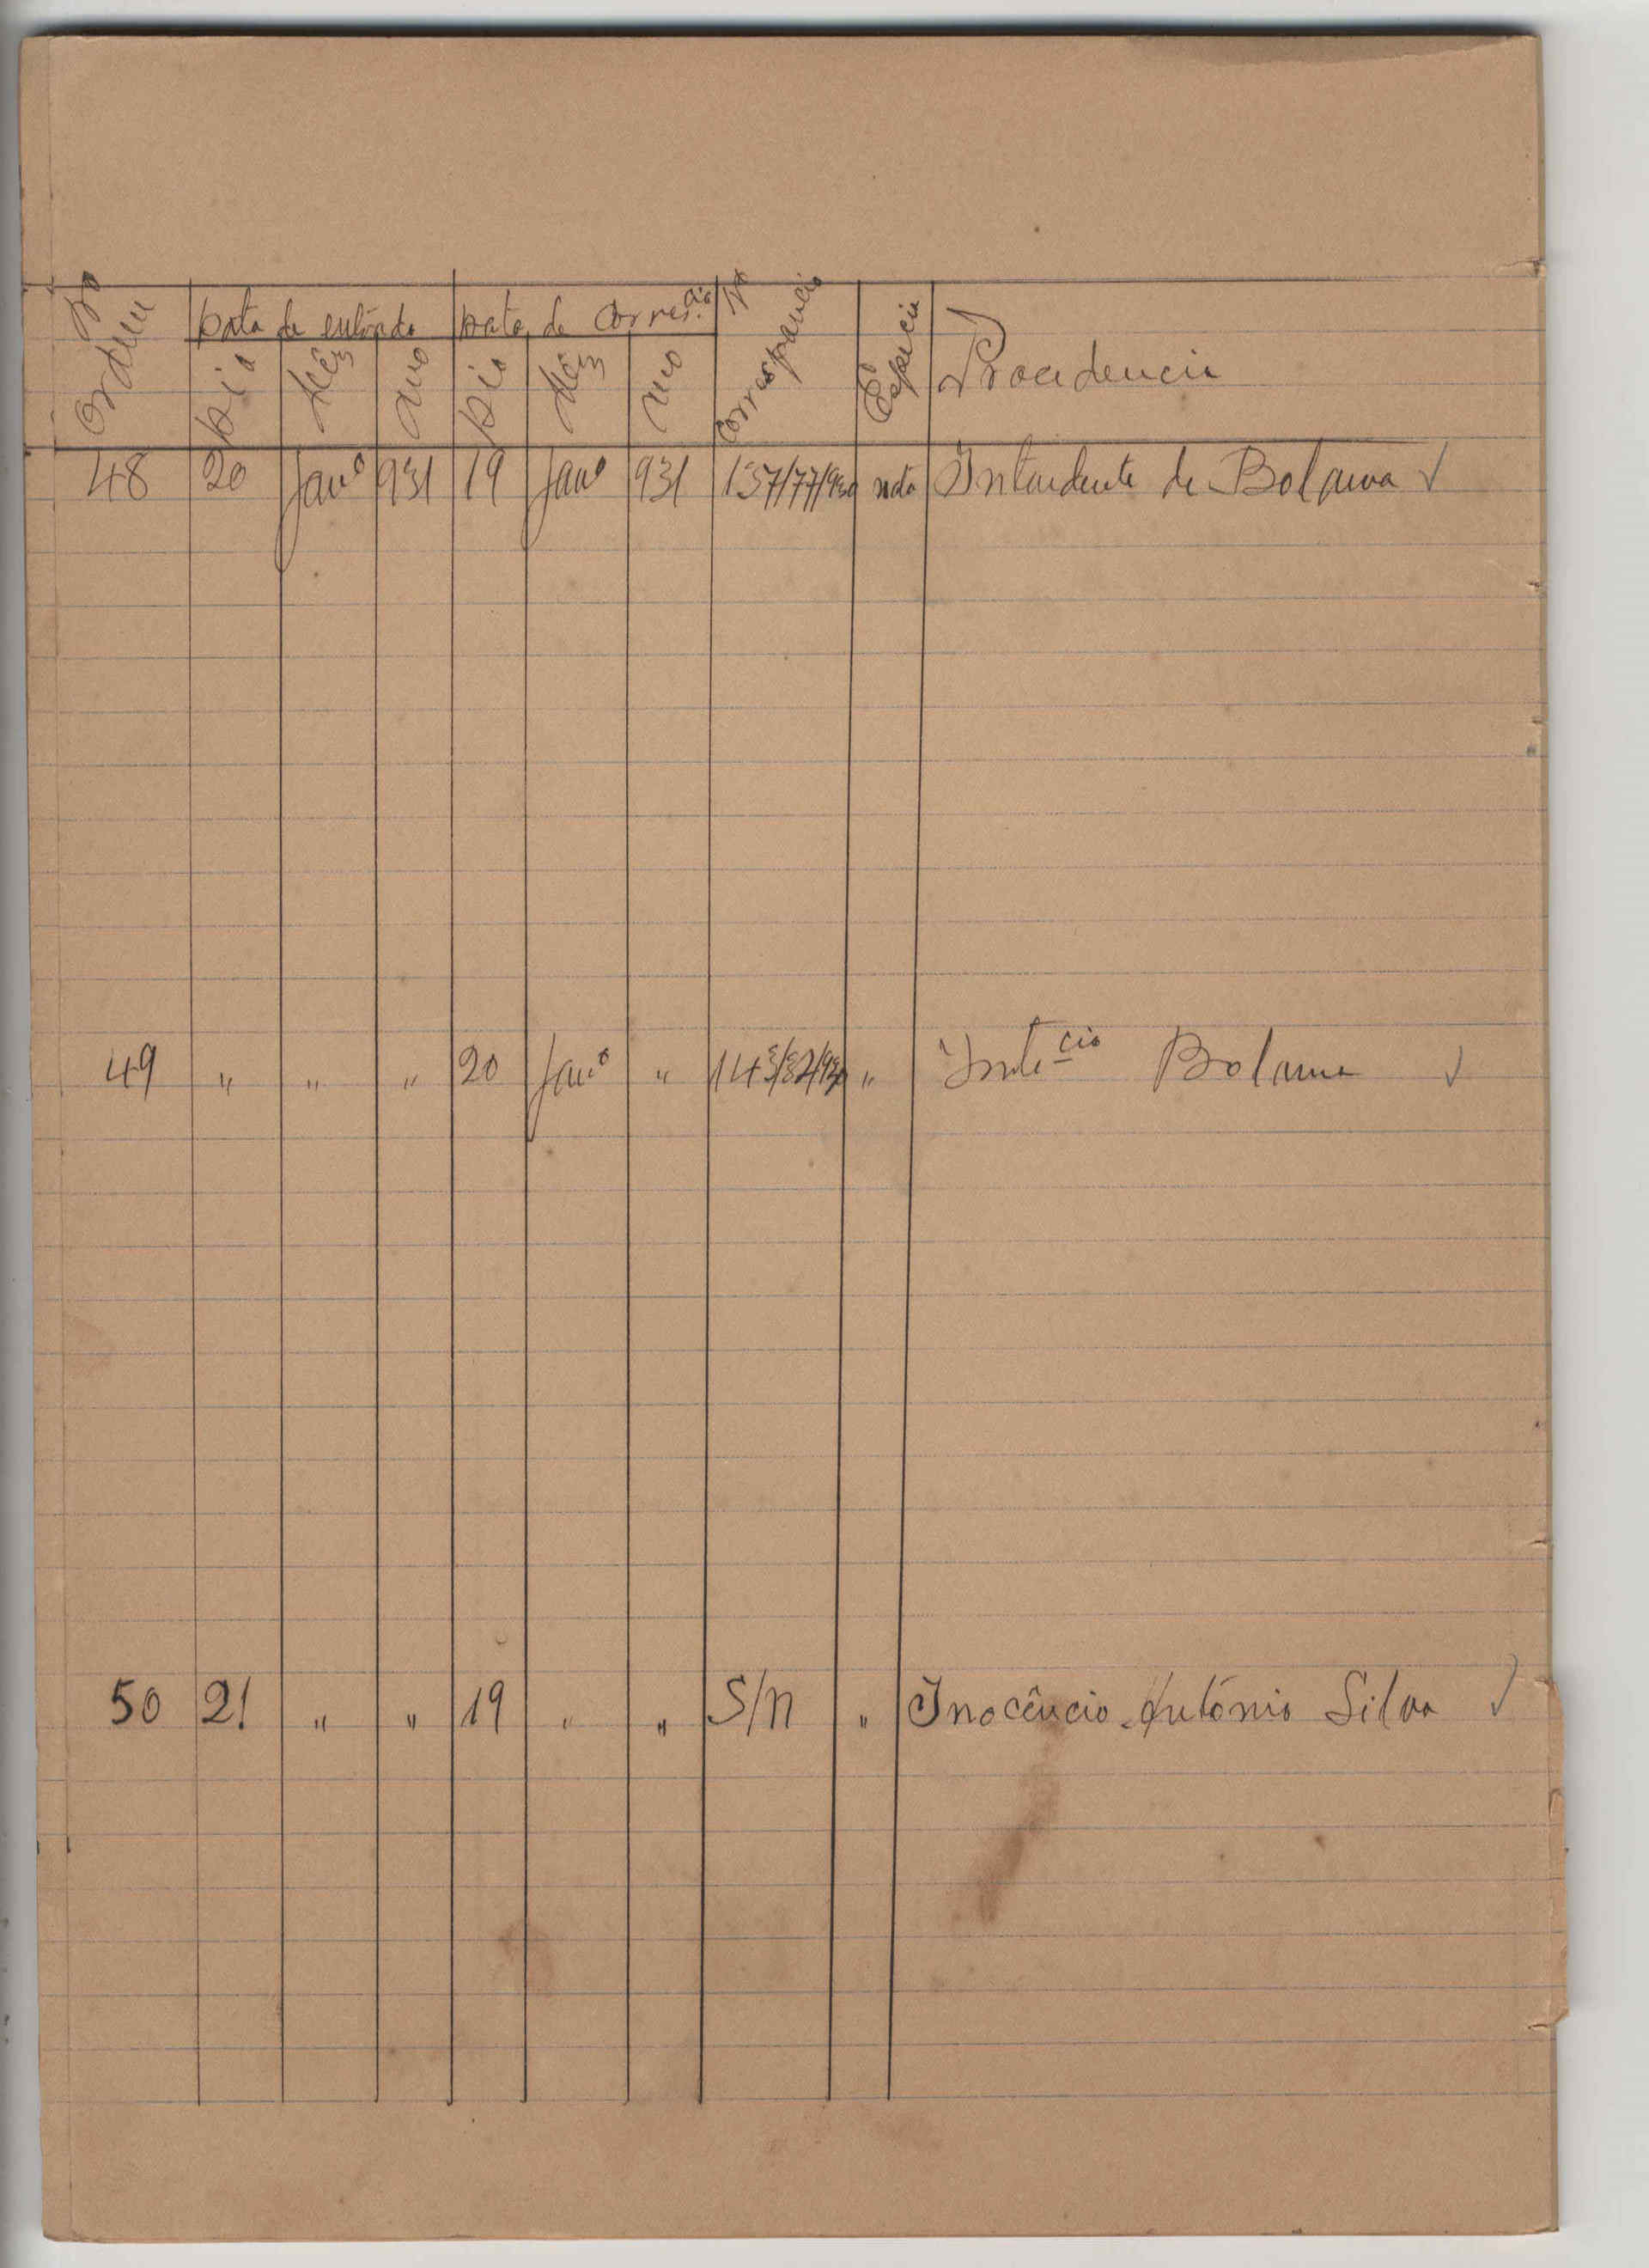 Nº Ordem Data de entrada Data de Corres.cia Nº Correspancia Espécie Procedencia
Dia Mês Ano Dia Mês Ano
48 20 Janº 931 19 Janº 931 137/77/930 nota Intendente de Bolama √
49 " " " 20 Janº " " Inte-cia Bolama √
50 21 " " 19 " " S/n " Inocêncio António Silva √